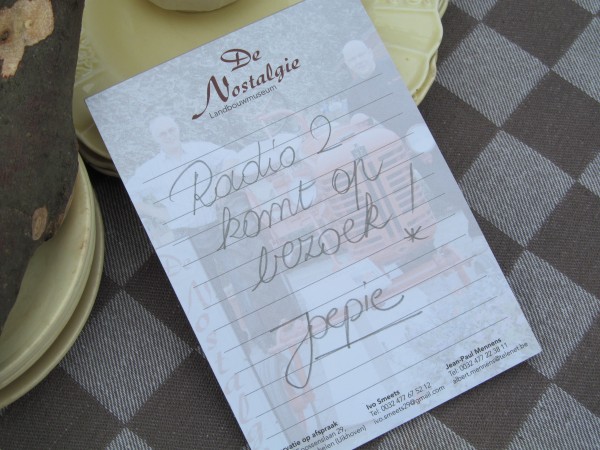 De
Nostalgie
Landbouwmuseum
Radio 2
komt op
bezoek!
*
Joepie
Jean-Paul Mennens
Tel. 0032 477 22 38 11
albert.mennens@telenet.be
Ivo Smeets
Tel. 0032 477 67 52 12
ivo.smeets29@gmail.com
op afspraak
29,
(Uikhoven)
De Nostalgi